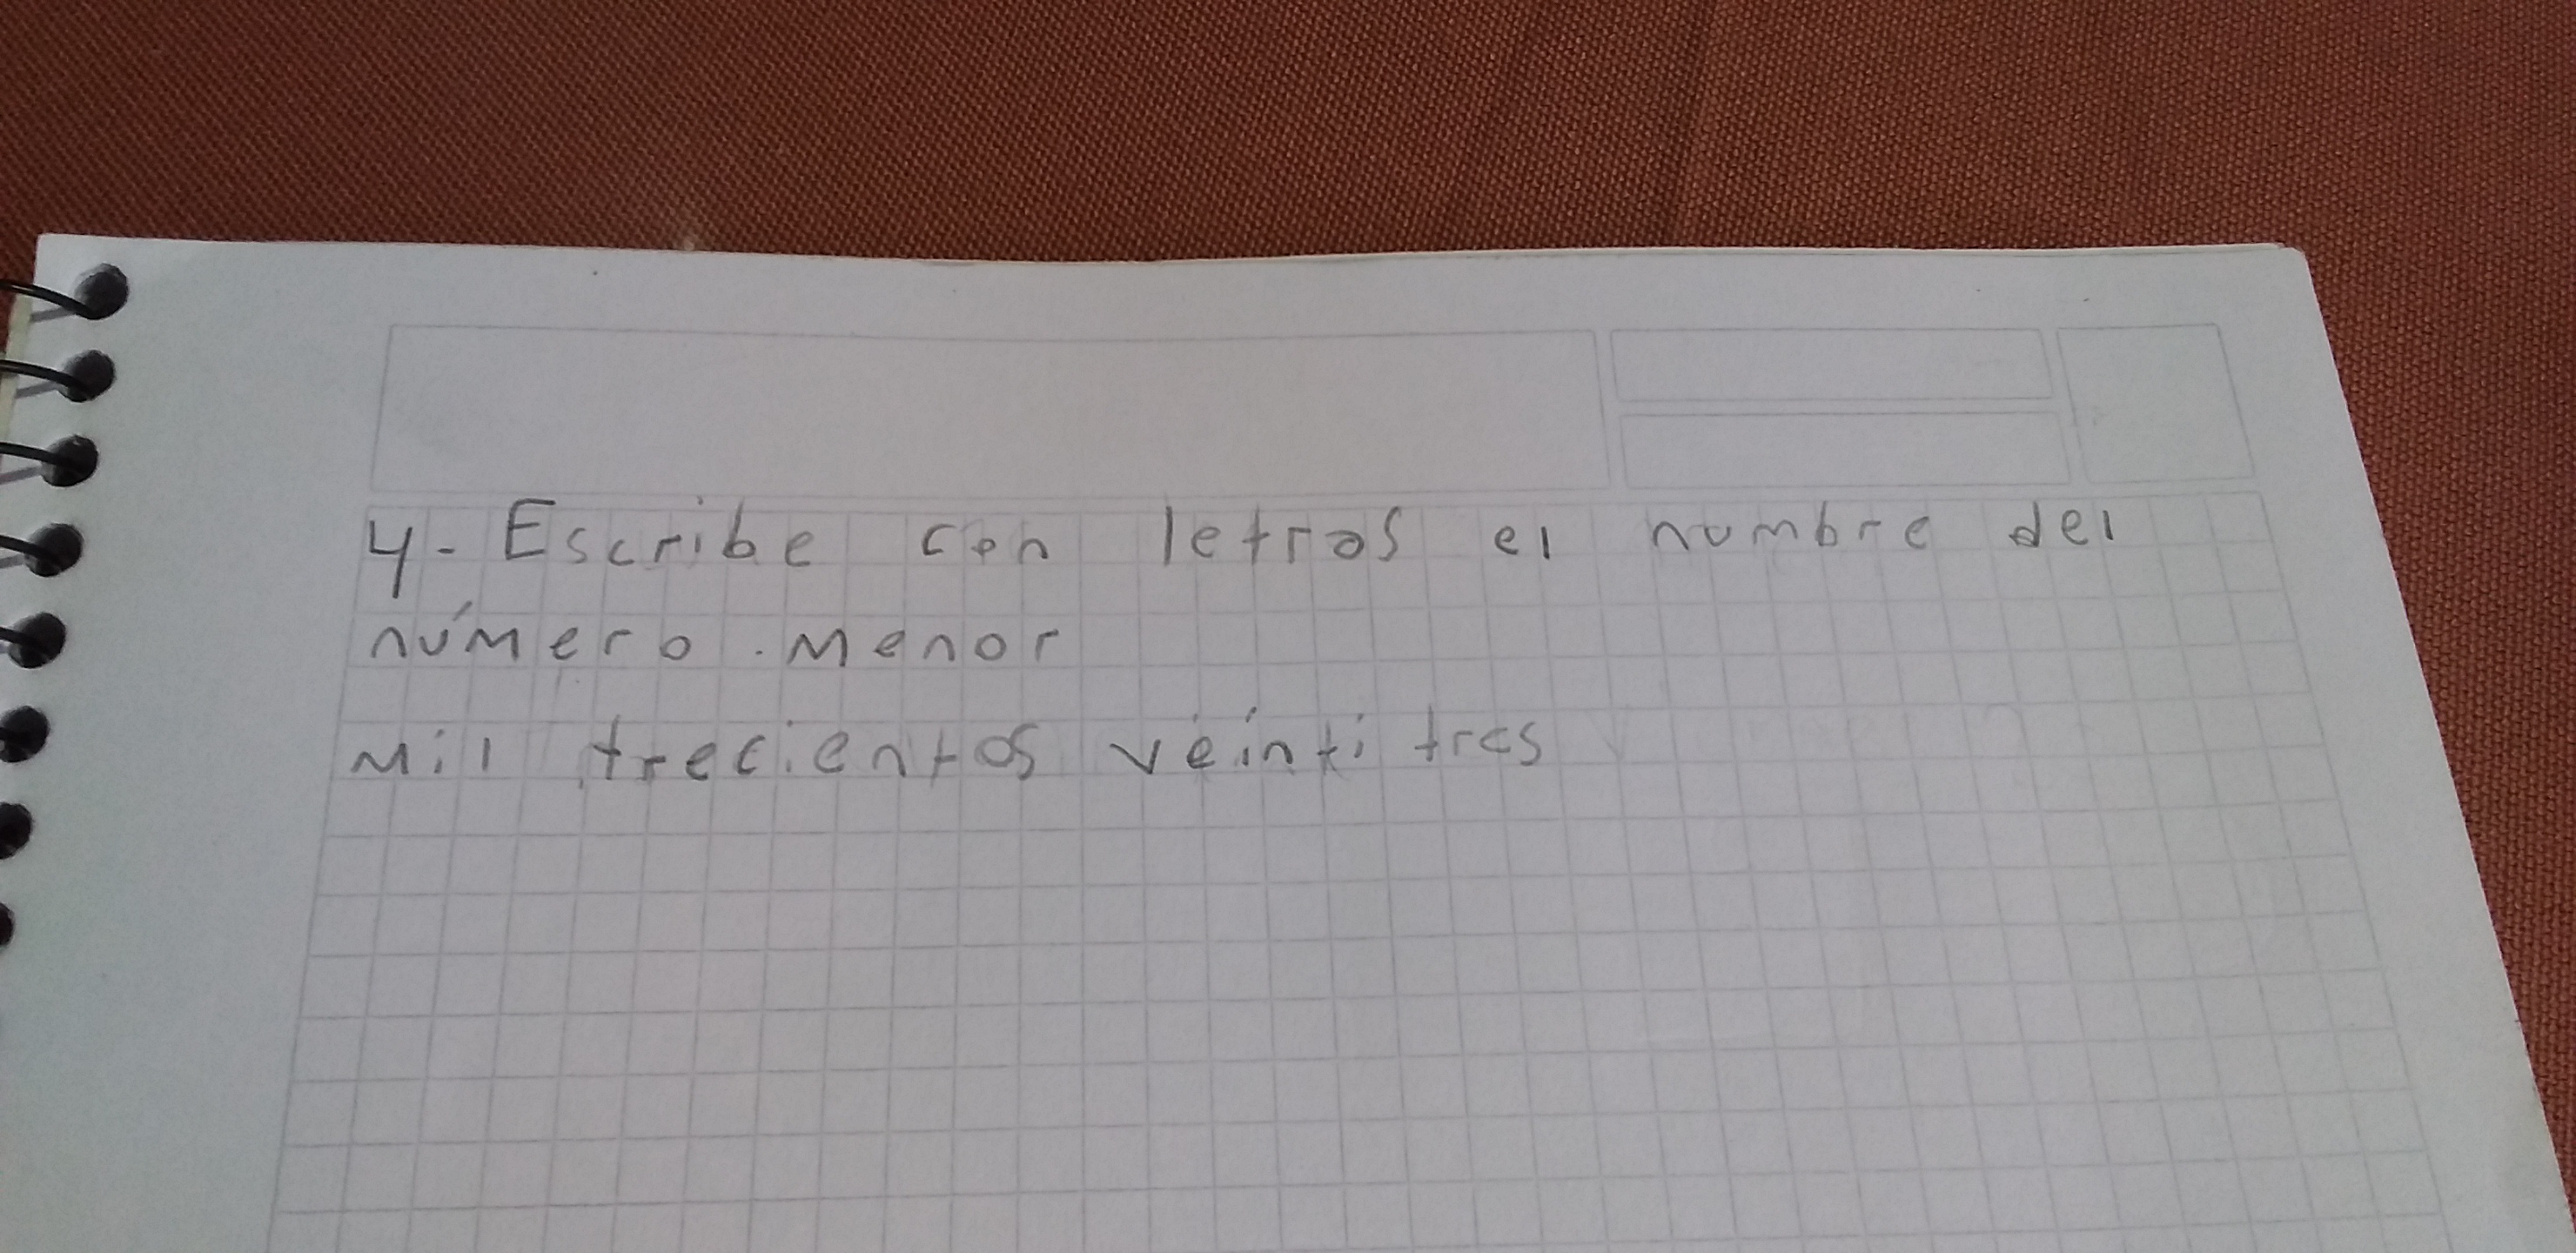 4- Escribe con letras el nombre del
número. menor
mil trecientos veínti tres